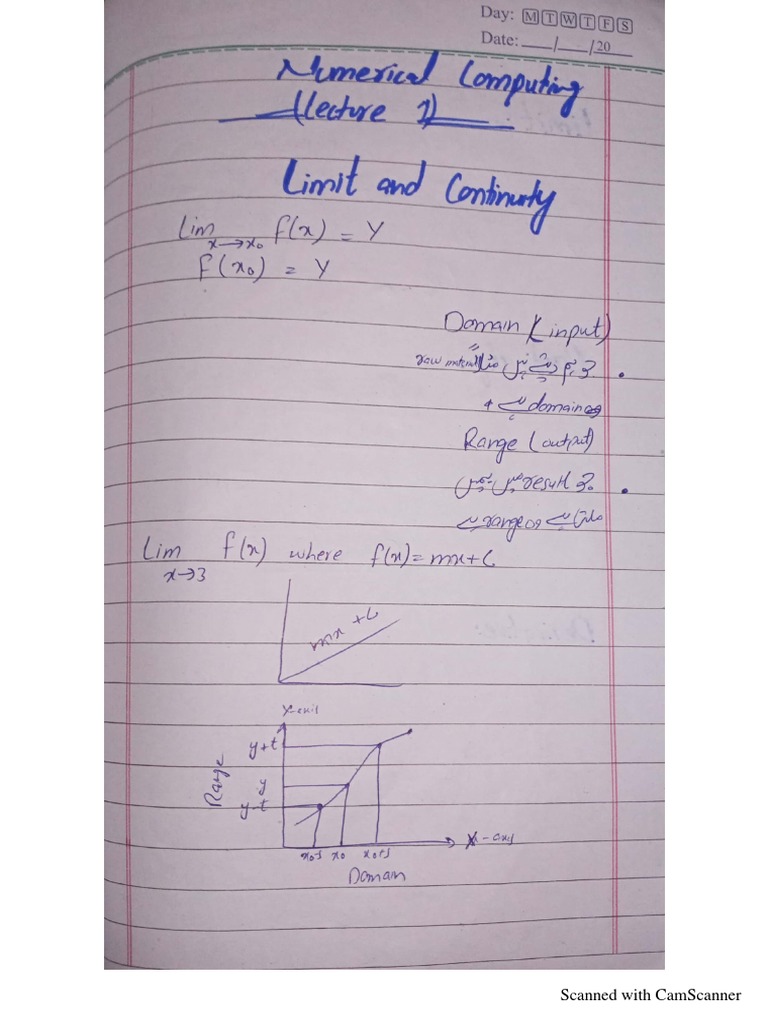 Day: M T W T F S
Date: __/__/20__
Numerical Computing
(Lecture 1)
Limit and Continuity
Lim x→x₀ f(x) = Y
f(x₀) = Y
Domain (input)
raw material
domain
Range (output)
result
range
Lim x→3 f(x) where f(x) = mx+c
mx+c
Y-axis
y+t
y
y-t
Range
x₀-s x₀ x₀+s
X-axis
Domain
Scanned with CamScanner